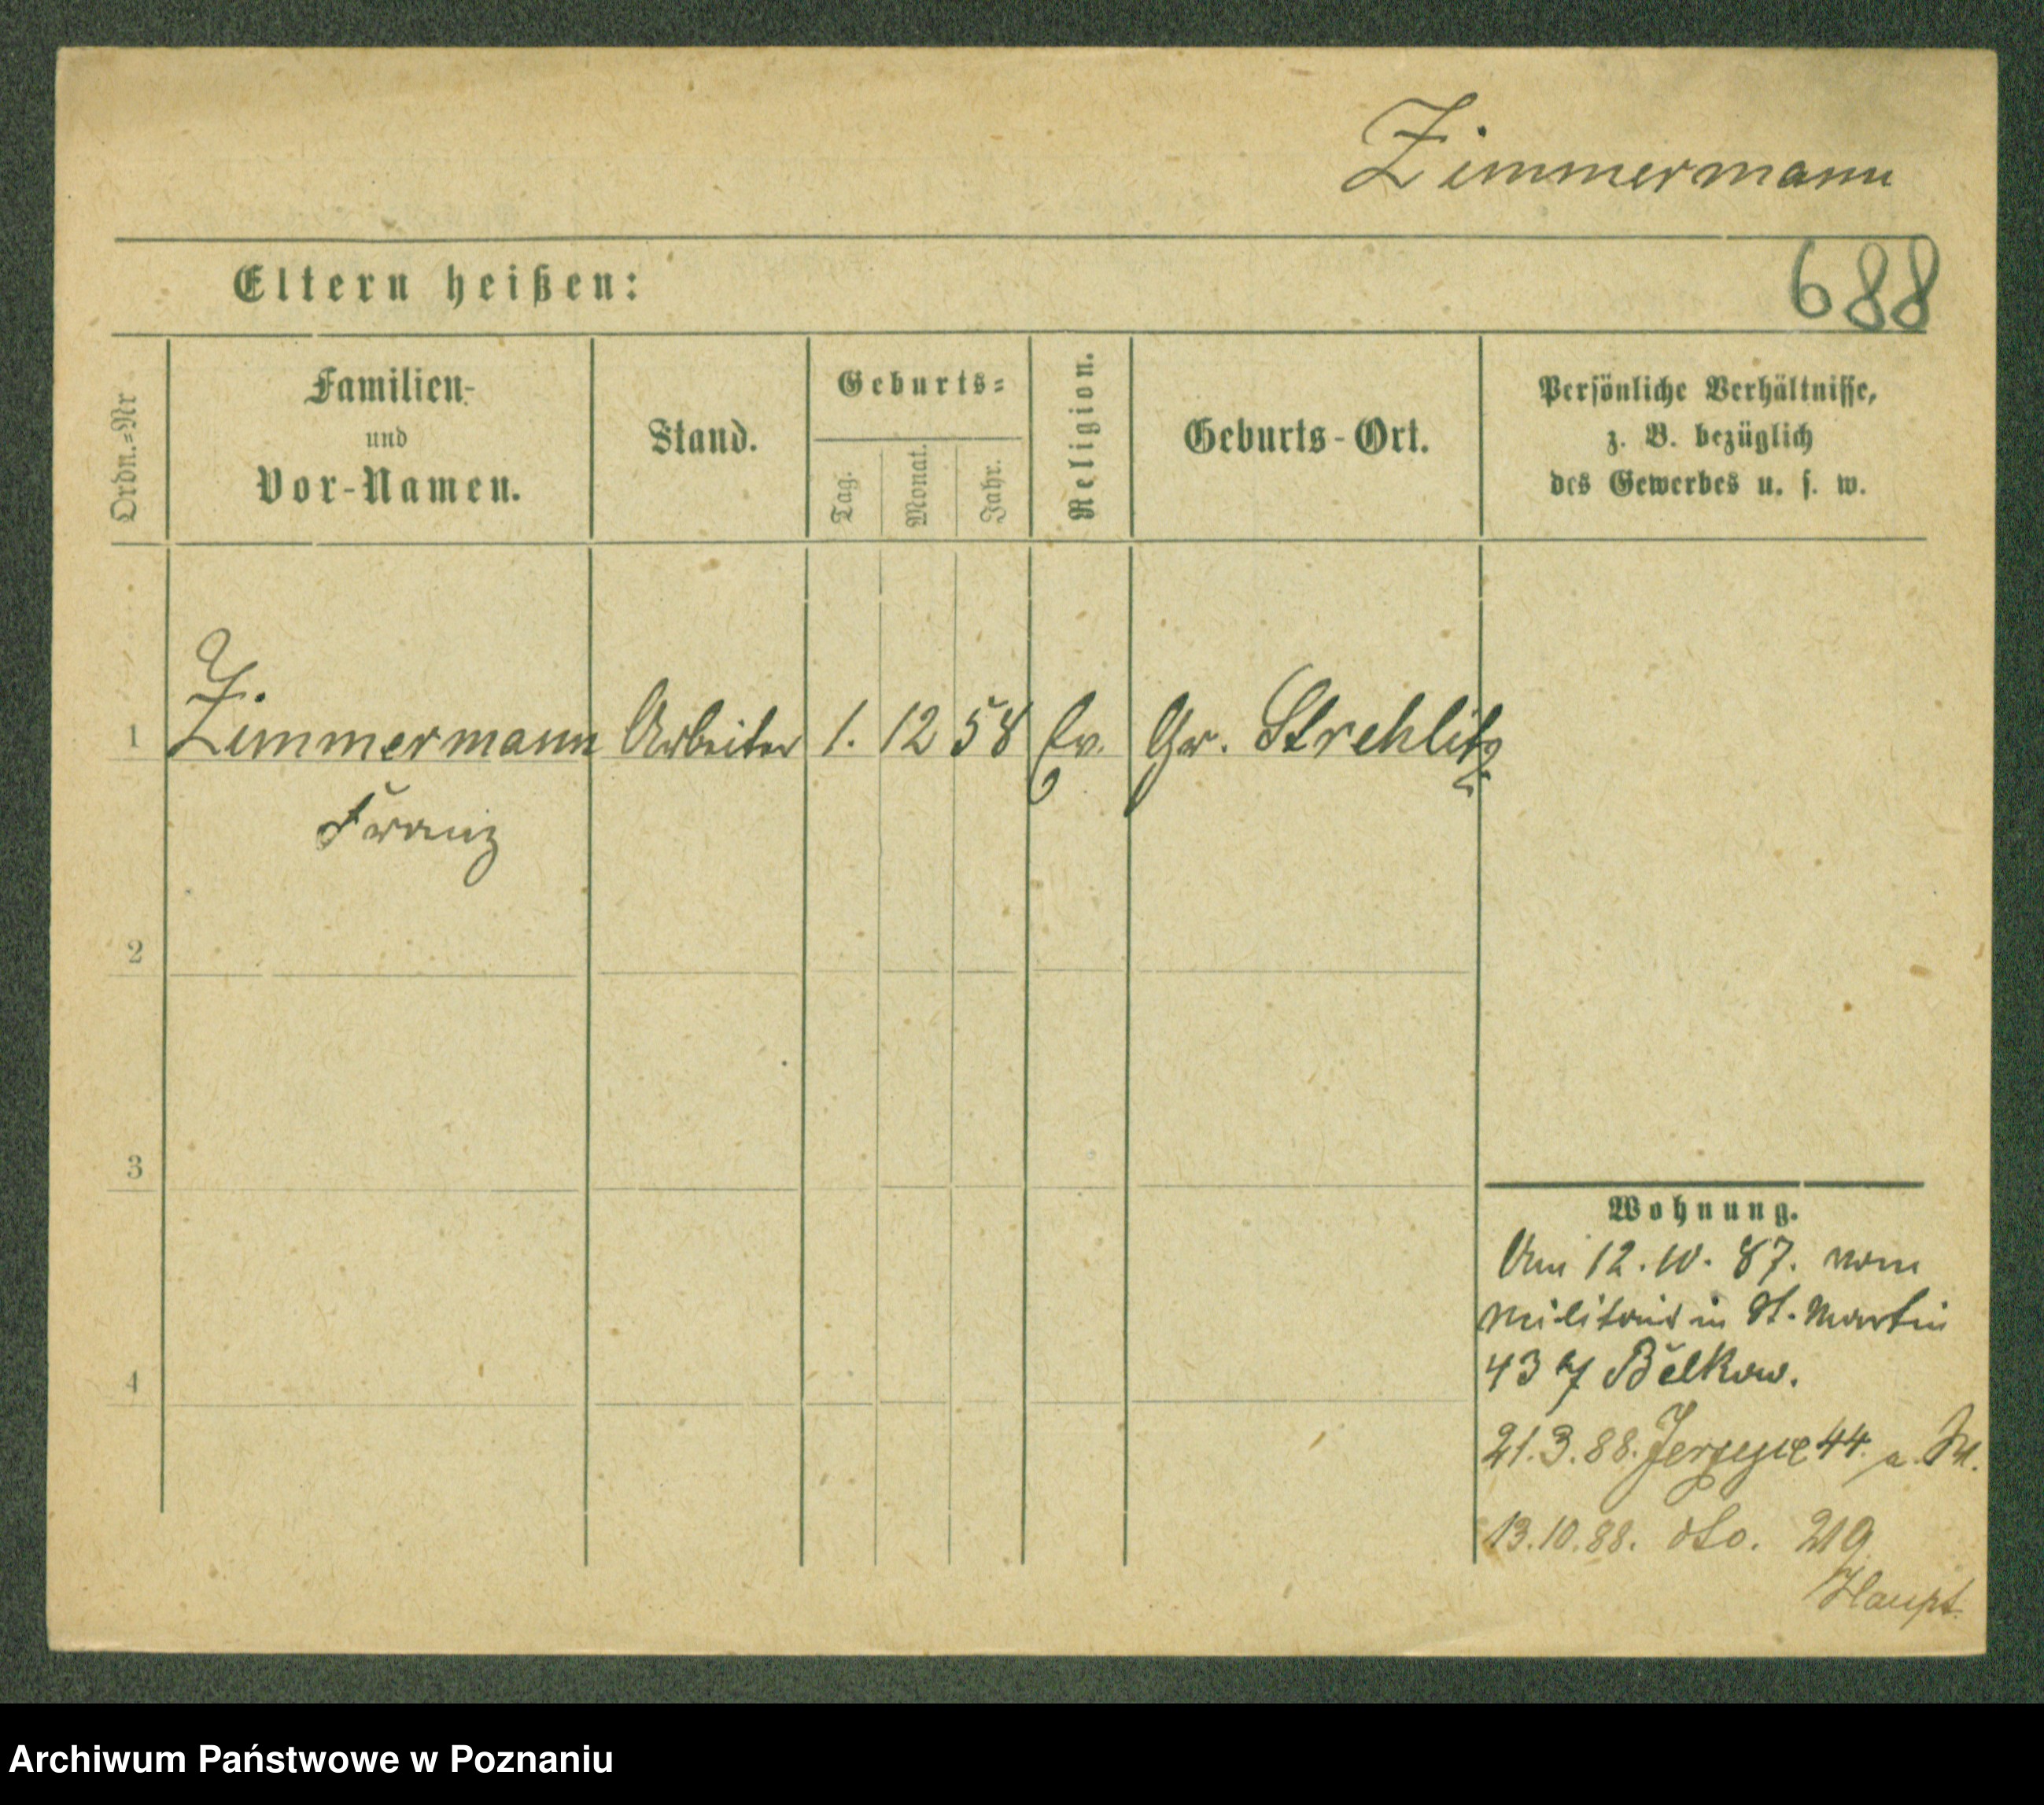 Zimmermann
688
Eltern heißen:
Ordn.=Nr
Familien-
und
Vor-Namen.
Stand.
Geburts=
Tag.
Monat.
Jahr.
Religion.
Geburts-Ort.
Persönliche Verhältnisse,
z. B. bezüglich
des Gewerbes u. s. w.
1 Zimmermann Arbeiter 1. 12 58 Ev. Gr. Strehlitz
Franz
2
3
4
Wohnung.
12. 10. 87. vom
Militair in St. Martin
43 Belkow.
21.3.88. 44
13.10.88. dto. 219
Haupt.
Archiwum Państwowe w Poznaniu